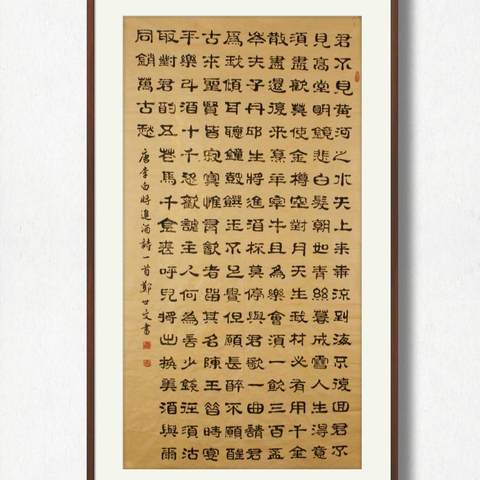 君不見黃河之水天上來奔流到海不復回君不
見高堂明鏡悲白髮朝如青絲暮成雪人生得意
須盡歡莫使金樽空對月天生我材必有用千金
散盡還復來烹羊宰牛且為樂會須一飲三百盃
岑夫子丹邱生將進酒杯莫停與君歌一曲請君
為我傾耳聽鐘鼓饌玉不足貴但願長醉不願醒
古來聖賢皆寂寞惟有飲者留其名陳王昔時宴
平樂斗酒十千恣歡謔主人何為言少錢徑須沽
取對君酌五花馬千金裘呼兒將出換美酒與爾
同銷萬古愁
唐李白將進酒詩一首鄭世文書